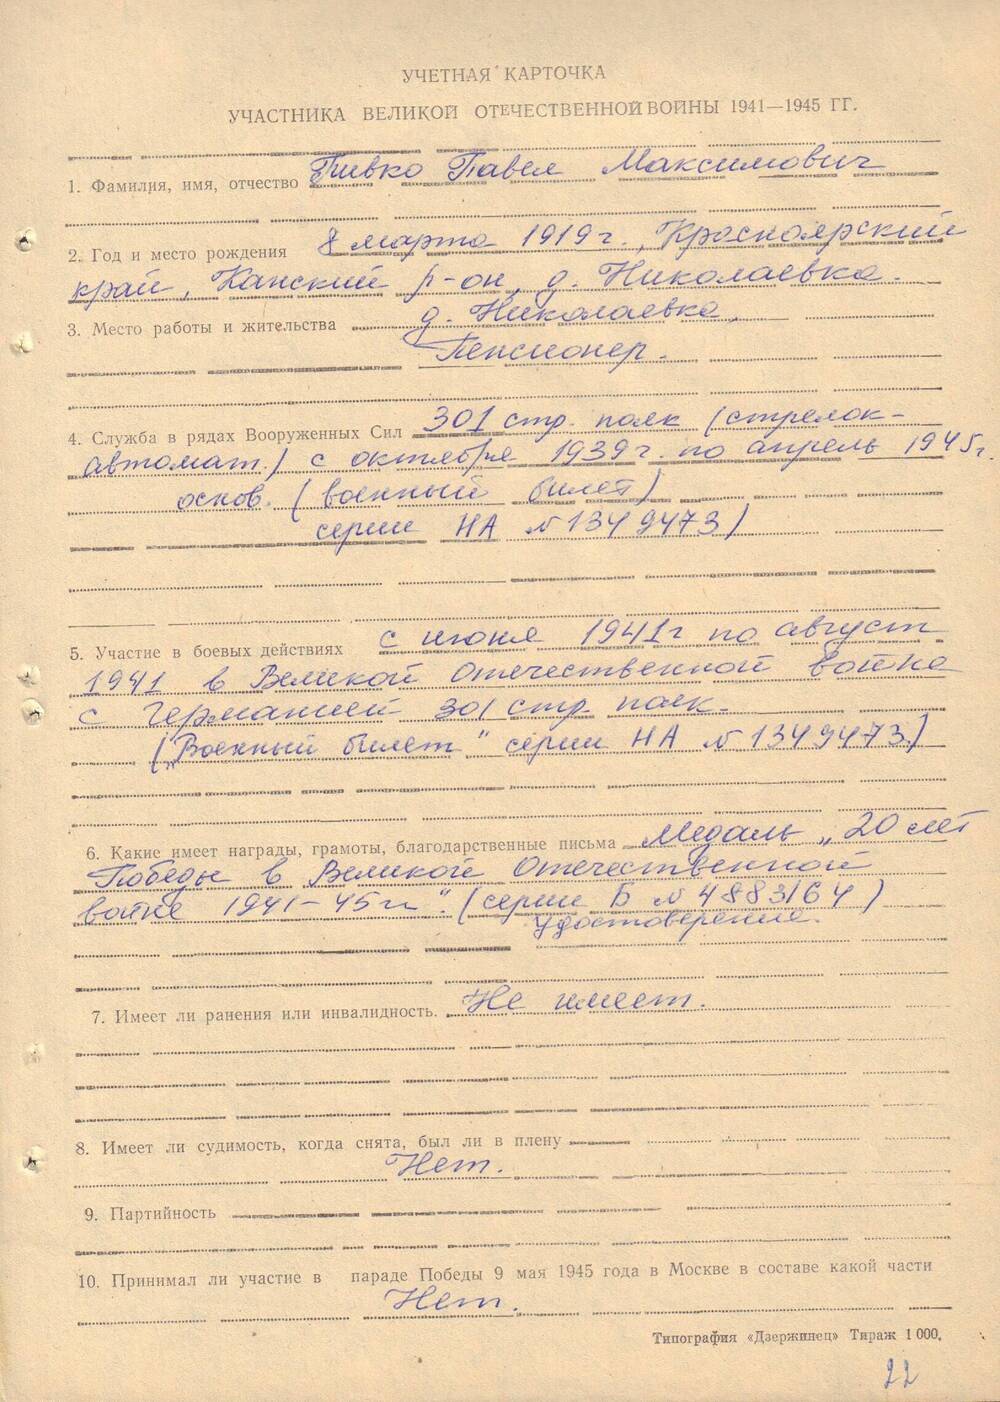 УЧЕТНАЯ КАРТОЧКА
УЧАСТНИКА ВЕЛИКОЙ ОТЕЧЕСТВЕННОЙ ВОЙНЫ 1941—1945 ГГ.
1. Фамилия, имя, отчество Пивко Павел Максимович
2. Год и место рождения 8 марта 1919 г., Красноярский
край, Канский р-он, д. Николаевка.
3. Место работы и жительства д. Николаевка,
Пенсионер.
4. Служба в рядах Вооруженных Сил 301 стр. полк (стрелок-
автомат.) с октября 1939 г. по апрель 1945 г.
основ. (военный билет)
серии НА № 1349473)
5. Участие в боевых действиях с июня 1941 г по август
1941 в Великой Отечественной войне
с Германией 301 стр. полк.
(„Военный билет" серии НА № 1349473)
6. Какие имеет награды, грамоты, благодарственные письма Медаль „20 лет
Победы в Великой Отечественной
войне 1941-45 гг". (серии Б № 4883164)
Удостоверение.
7. Имеет ли ранения или инвалидность. Не имеет.
8. Имеет ли судимость, когда снята, был ли в плену
Нет.
9. Партийность
10. Принимал ли участие в параде Победы 9 мая 1945 года в Москве в составе какой части
Нет.
Типография «Дзержинец» Тираж 1 000.
22